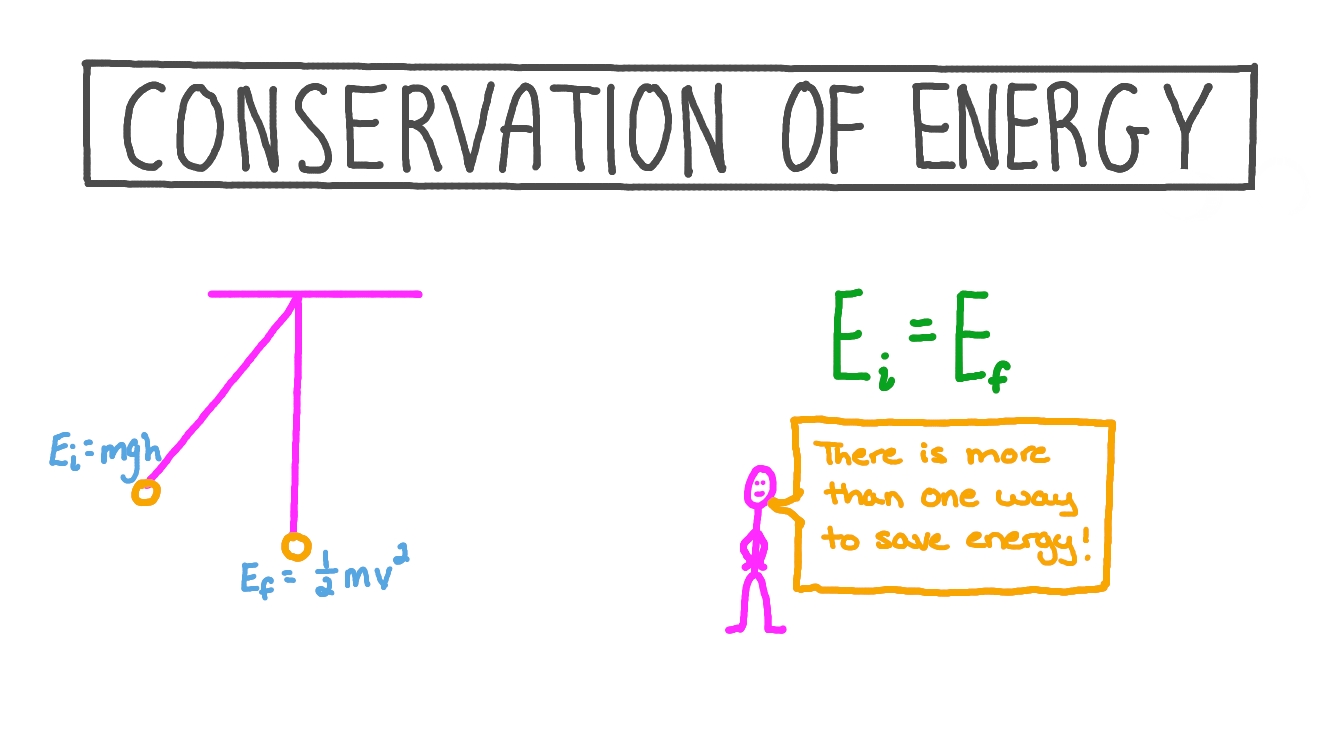 CONSERVATION OF ENERGY
Ei=mgh
Ef = ½mv²
Ei = Ef
There is more
than one way
to save energy!